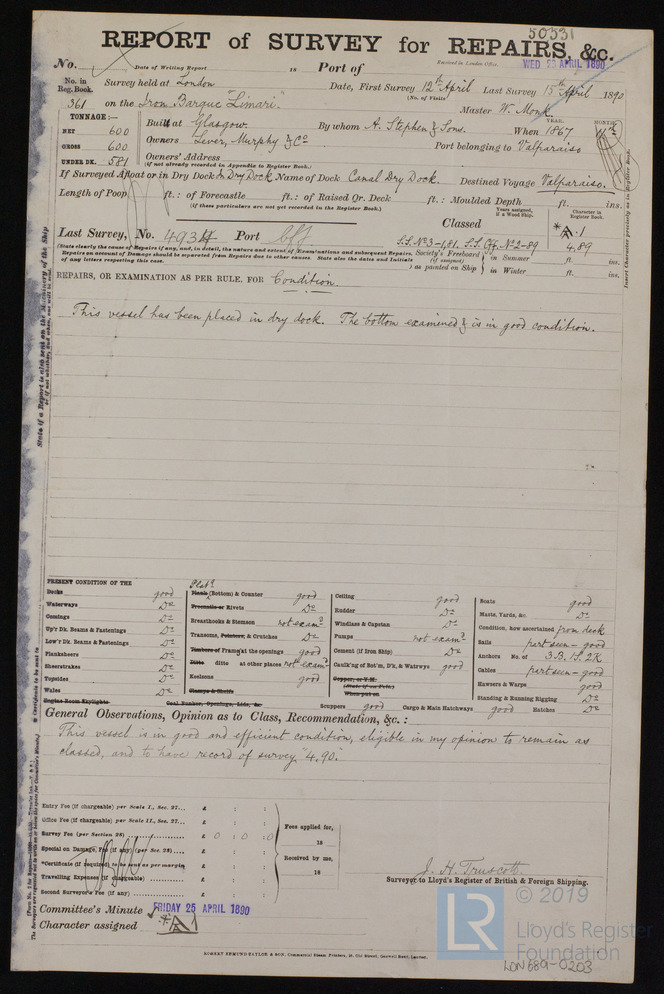 50531
REPORT of SURVEY for REPAIRS, &c.
No. Date of Writing Report 18 Port of Received in London Office WED 23 APRIL 1890
No. in Reg. Book. Survey held at London Date, First Survey 12th April Last Survey 15th April 1890
(No. of Visits)
361 on the Iron Barque "Limari." Master W. Monk
TONNAGE:— Built at Glasgow. By whom A. Stephen & Sons. When 1867 YEAR. MONTH.
NET 600
GROSS 600
UNDER DK. 581
Owners Lever, Murphy & Co Port belonging to Valparaiso
Owners' Address
(if not already recorded in Appendix to Register Book.)
If Surveyed Afloat or in Dry Dock In Dry Dock Name of Dock Canal Dry Dock. Destined Voyage Valparaiso.
Length of Poop ft.: of Forecastle ft.: of Raised Qr. Deck ft.: Moulded Depth ft. ins.
(if these particulars are not yet recorded in the Register Book.)
Years assigned, if a Wood Ship. Character in Register Book.
Last Survey, No. Port Classed
S.S. No3-1,81. S.S. No2-89
*A.1
4,89
(State clearly the cause of Repairs if any, and, in detail, the nature and extent of Examinations and subsequent Repairs.
Repairs on account of Damage should be separated from Repairs due to other causes. State also the dates and Initials
of any letters respecting this case.
Society's Freeboard (if assigned) as painted on Ship in Summer ft. ins.
in Winter ft. ins.
REPAIRS, OR EXAMINATION AS PER RULE, FOR Condition
This vessel has been placed in dry dock. The bottom examined & is in good condition.
PRESENT CONDITION OF THE
Decks good
Waterways Do
Comings Do
Up'r Dk. Beams & Fastenings Do
Low'r Dk. Beams & Fastenings Do
Planksheers Do
Sheerstrakes Do
Topsides Do
Wales Do
Engine Room Skylights
Plank (Bottom) & Counter good
Treenails or Rivets Do
Breasthooks & Stemson not exam?
Transoms, Pointers, & Crutches Do
Timbers of Frame at the openings good
Ditto ditto at other places not exam?
Keelsons good
Clamps & Shelfs
Coal Bunker, Openings, Lids, &c.
Ceiling good
Rudder Do
Windlass & Capstan Do
Pumps not exam?
Cement (if Iron Ship) Do
Caulk'ng of Bot'm, D'k, & Watrwys good
Copper, or Y.M.
(State if on Felt)
When put on
Scuppers good Cargo & Main Hatchways good Hatches Do
Boats good
Masts, Yards, &c. Do
Condition, how ascertained from deck
Sails part seen - good
Anchors No. of 3.B, 1S, 2K
Cables part seen - good
Hawsers & Warps good
Standing & Running Rigging Do
General Observations, Opinion as to Class, Recommendation, &c.:
This vessel is in good and efficient condition, eligible in my opinion to remain as
classed, and to have record of survey "4,90."
Entry Fee (if chargeable) per Scale I., Sec. 27... £ : :
Office Fee (if chargeable) per Scale II., Sec. 27... £ : :
Survey Fee (per Section 28) £ 0 : 0 : 0
Special or Damage Fee (if any) (per Sec. 28) £ : :
*Certificate (if required) to be sent as per margin £ : :
Travelling Expenses (if chargeable) £ : :
Second Surveyor's Fee (if any) £ : :
Fees applied for,
18
Received by me,
18
J. H. Truscott.
Surveyor to Lloyd's Register of British & Foreign Shipping.
Committee's Minute FRIDAY 25 APRIL 1890
Character assigned *A1
ROBERT EDMUND TAYLOR & SON, Commercial Steam Printers, 19, Old Street, Goswell Road, London.
LR
© 2019
Lloyd's Register
Foundation
LDN689-0203